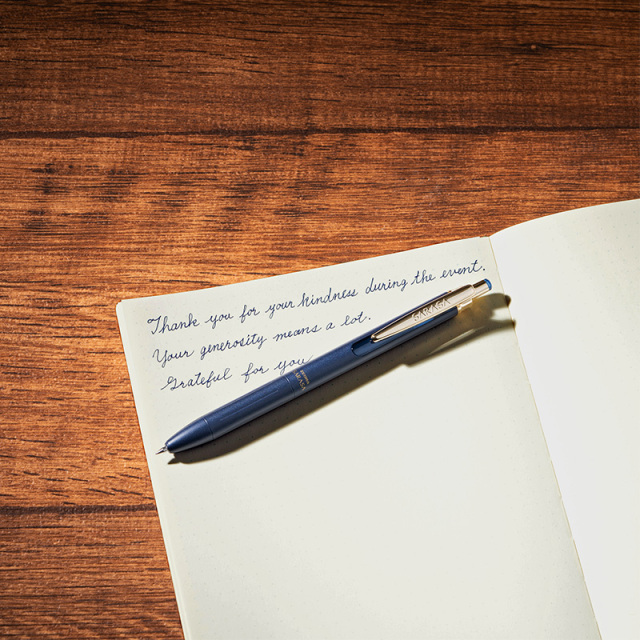 Thank you for your kindness during the event.
Your generosity means a lot.
Grateful for you